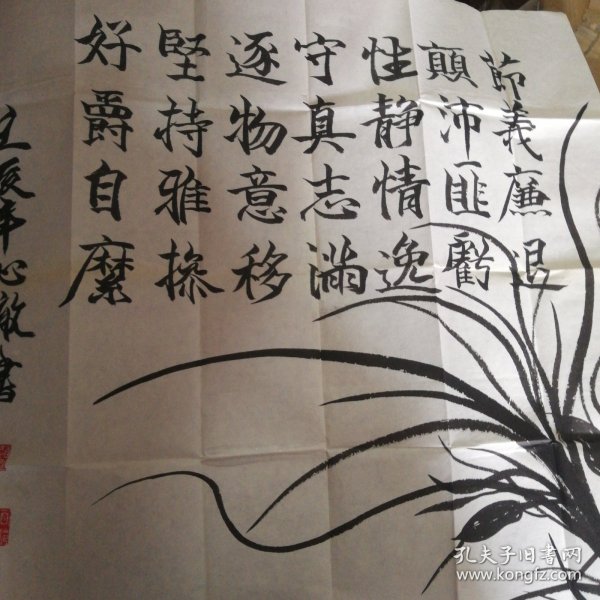 節義廉退
顛沛匪虧
性靜情逸
守真志滿
逐物意移
堅持雅操
好爵自縻
壬辰年心敏書
孔夫子旧书网
www.kongfz.com